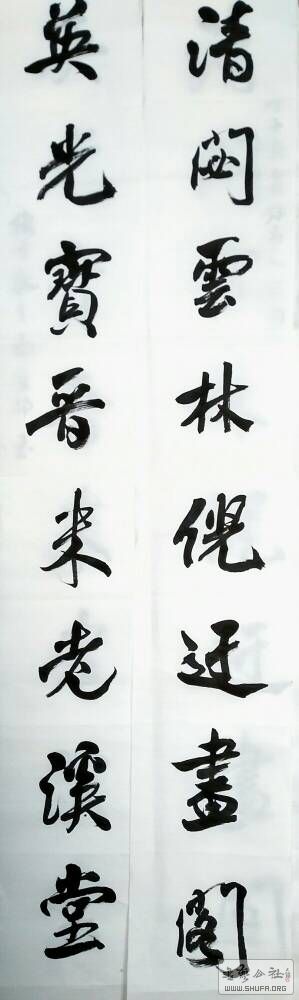 清閟雲林倪迂畫閣
英光寶晉米老溪堂
WWW.SHUFA.ORG